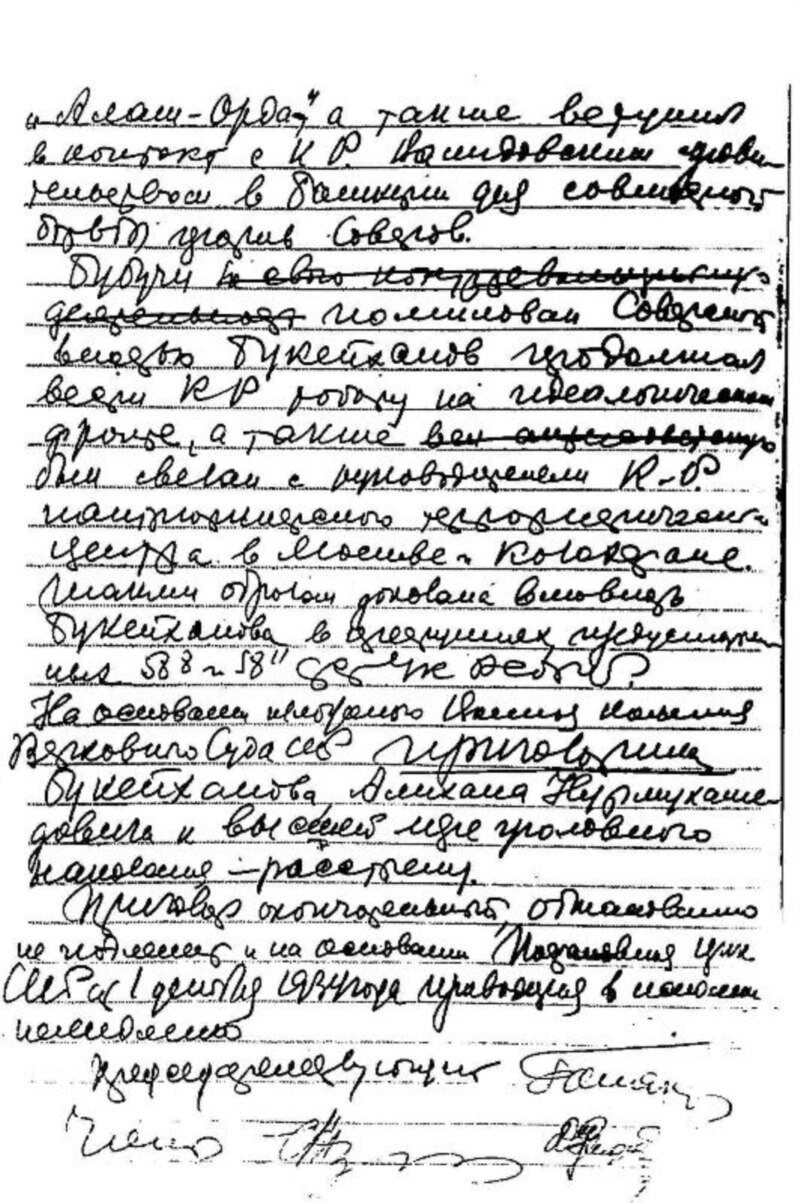 „Алаш-Орда" а также вступил
в контакт с К.Р. Валидовским прави
тельством в Башкирии для совместной
борьбы против Советов.
Будучи за свою контрреволюционную
деятельность помилован Советской
властью Букейханов продолжал
вести КР работу на идеалогическом
фронте, а также
был связан с руководителями К-Р.
террористического
центра в Москве и Казахстане.
Таким образом доказана виновность
Букейханова в преступлениях предусмотрен
ных 58⁸ и 58¹¹ УК РСФСР.
На основании изложенного Военная коллегия
Верховного Суда СССР приговорила
Букейханова Алихана Нурмухаме
довича к высшей мере уголовного
наказания – расстрелу.
Приговор окончательный, обжалованию
не подлежит и на основании Постановления ЦИК
СССР от 1 декабря 1934 года приводится в исполнение
немедленно
Председательствующий
Члены